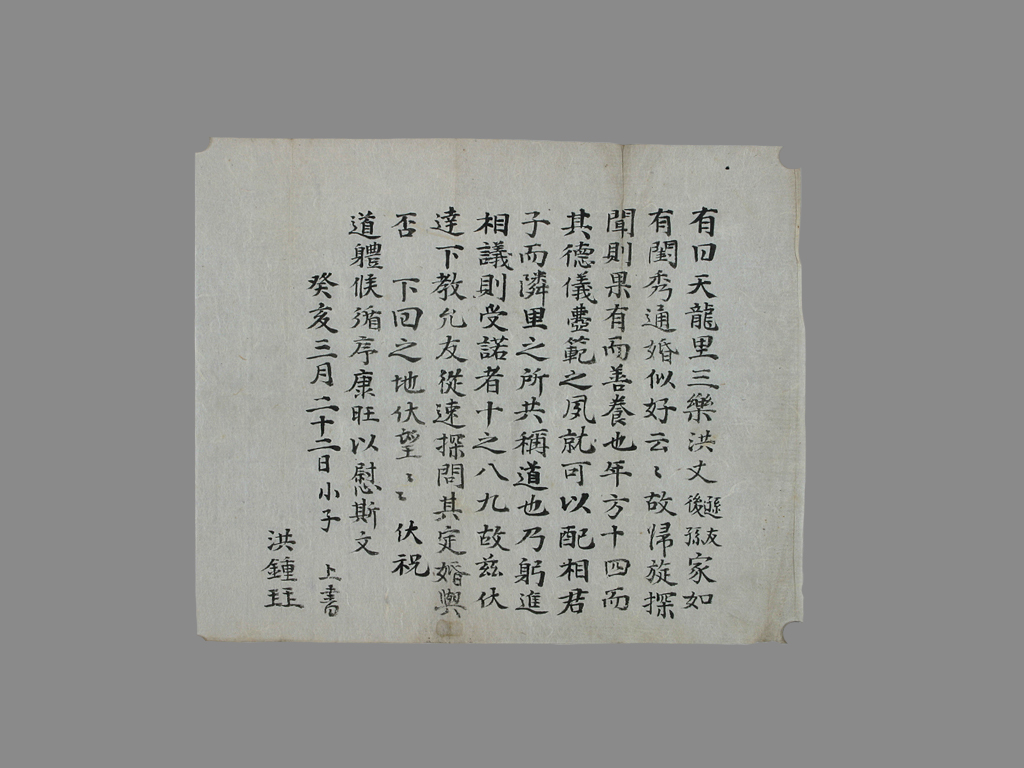 有曰天龍里三樂洪丈遜友後孫家如
有閨秀通婚似好云〻故帰旋探
聞則果有而善養也年方十四而
其德儀壼範之夙就可以配相君
子而隣里之所共稱道也乃躬進
相議則受諾者十之八九故玆伏
達下敎允友從速探問其定婚與
否 下回之地伏望〻〻伏祝
道軆候循序康旺以慰斯文
癸亥三月二十二日小子 上書
洪鍾玨